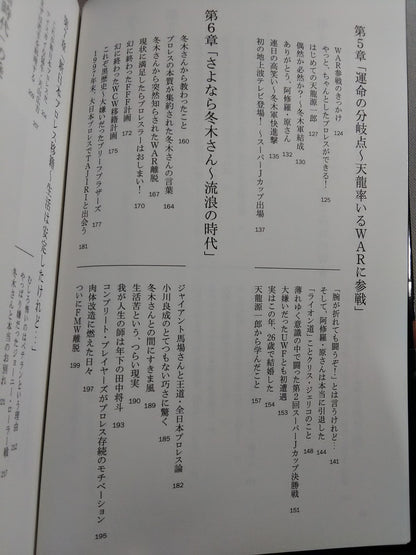 第5章「運命の分岐点～天龍率いるWARに参戦」
WAR参戦のきっかけ 124
やっと、ちゃんとしたプロレスができる! 125
はじめての天龍源一郎 127
偶然か必然か?～冬木軍結成 130
ありがとう、阿修羅・原さん 133
連日の高笑い～冬木軍快進撃 135
初の地上波テレビ登場! ～スーパーJカップ出場 137
「腕が折れても闘うぞ!」とは言うけれど 141
そして、阿修羅・原さんは本当に引退した 144
「ライオン道」ことクリス・ジェリコのこと 148
薄れゆく意識の中で闘った第2回スーパーJカップ決勝戦 151
大嫌いだったUWFとも初遭遇 153
実はこの年、26歳で結婚した 154
天龍源一郎から学んだこと 157
第6章「さよなら冬木さん～流浪の時代」
冬木さんから教わったこと 160
プロレスの本質が集約された冬木さんの言葉 164
冬木さんから突然知らされたWAR離脱 167
現状に満足したらプロレスラーはおしまい! 170
幻に終わったFFF計画 172
幻に終わったWCW移籍計画 175
これぞ黒歴史、大嫌いだったブリーフブラザーズ 177
1997年末、大日本プロレスでTAJIRIと出会う 181
ジャイアント馬場さんと王道・全日本プロレス論 182
小川良成のとてつもない巧さに驚く 185
冬木さんとの間にすきま風 189
生活苦という、つらい現実 190
我が人生の師は年下の田中将斗 193
コンプリート・プレイヤーズがプロレス存続のモチベーション 195
肉体改造に燃えた日々 197
ついにFMW離脱 199